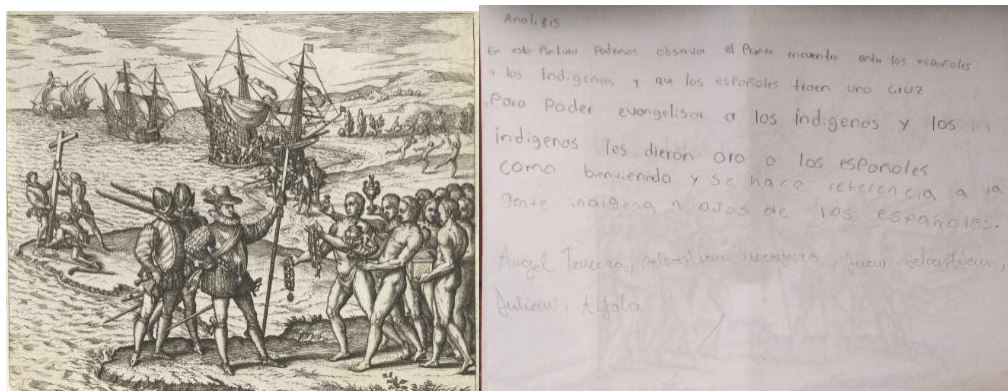 Analisis
En esta Pintura Podemos observar el Primer encuentro entre los españoles
y los Indigenas y que los españoles traen una cruz
Para Poder evangelisar a los indigenas y los
indigenas les dieron oro a los españoles
como bienvienida y se hace referencia a la
gente indigena a ojos de los españoles.
Angel Juan Sebastian,
Julian, Ayala